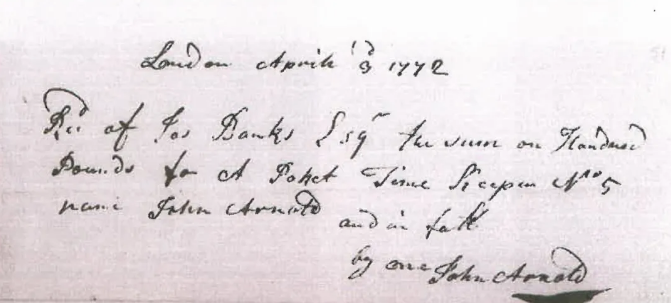 London Aprile 3d 1772
Recd of Jos Banks Esqr the sum on Handred
Pounds for A Poket Time Keeper No 5
name John Arnold
and in full
by one John Arnold